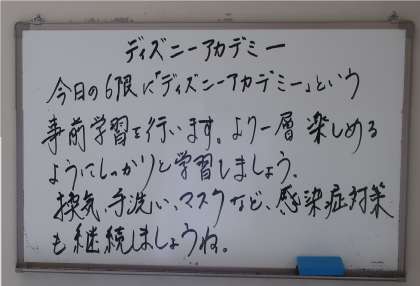 ディズニーアカデミー
今日の6限に「ディズニーアカデミー」という
事前学習を行います。より一層楽しめる
ようにしっかりと学習しましょう。
換気、手洗い、マスクなど、感染症対策
も継続しましょうね。